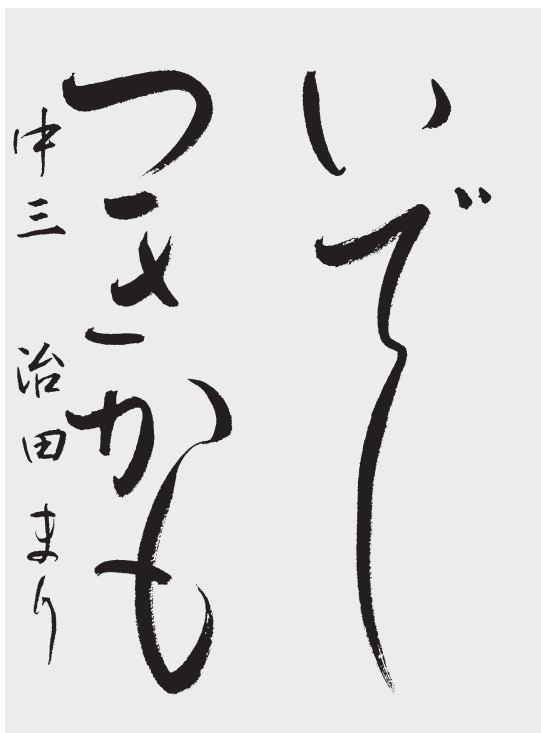 いでし
つきかも
中三 治田まり